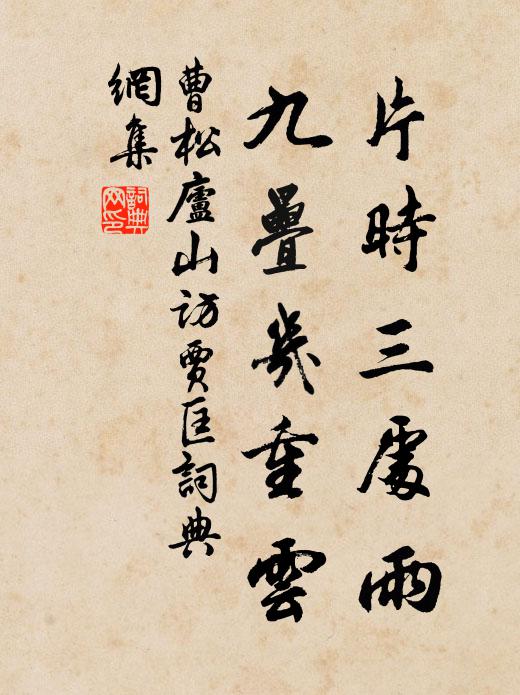 片時三處雨
九疊幾重雲
曹松廬山訪賈匡詞典
網集
詞典
网印